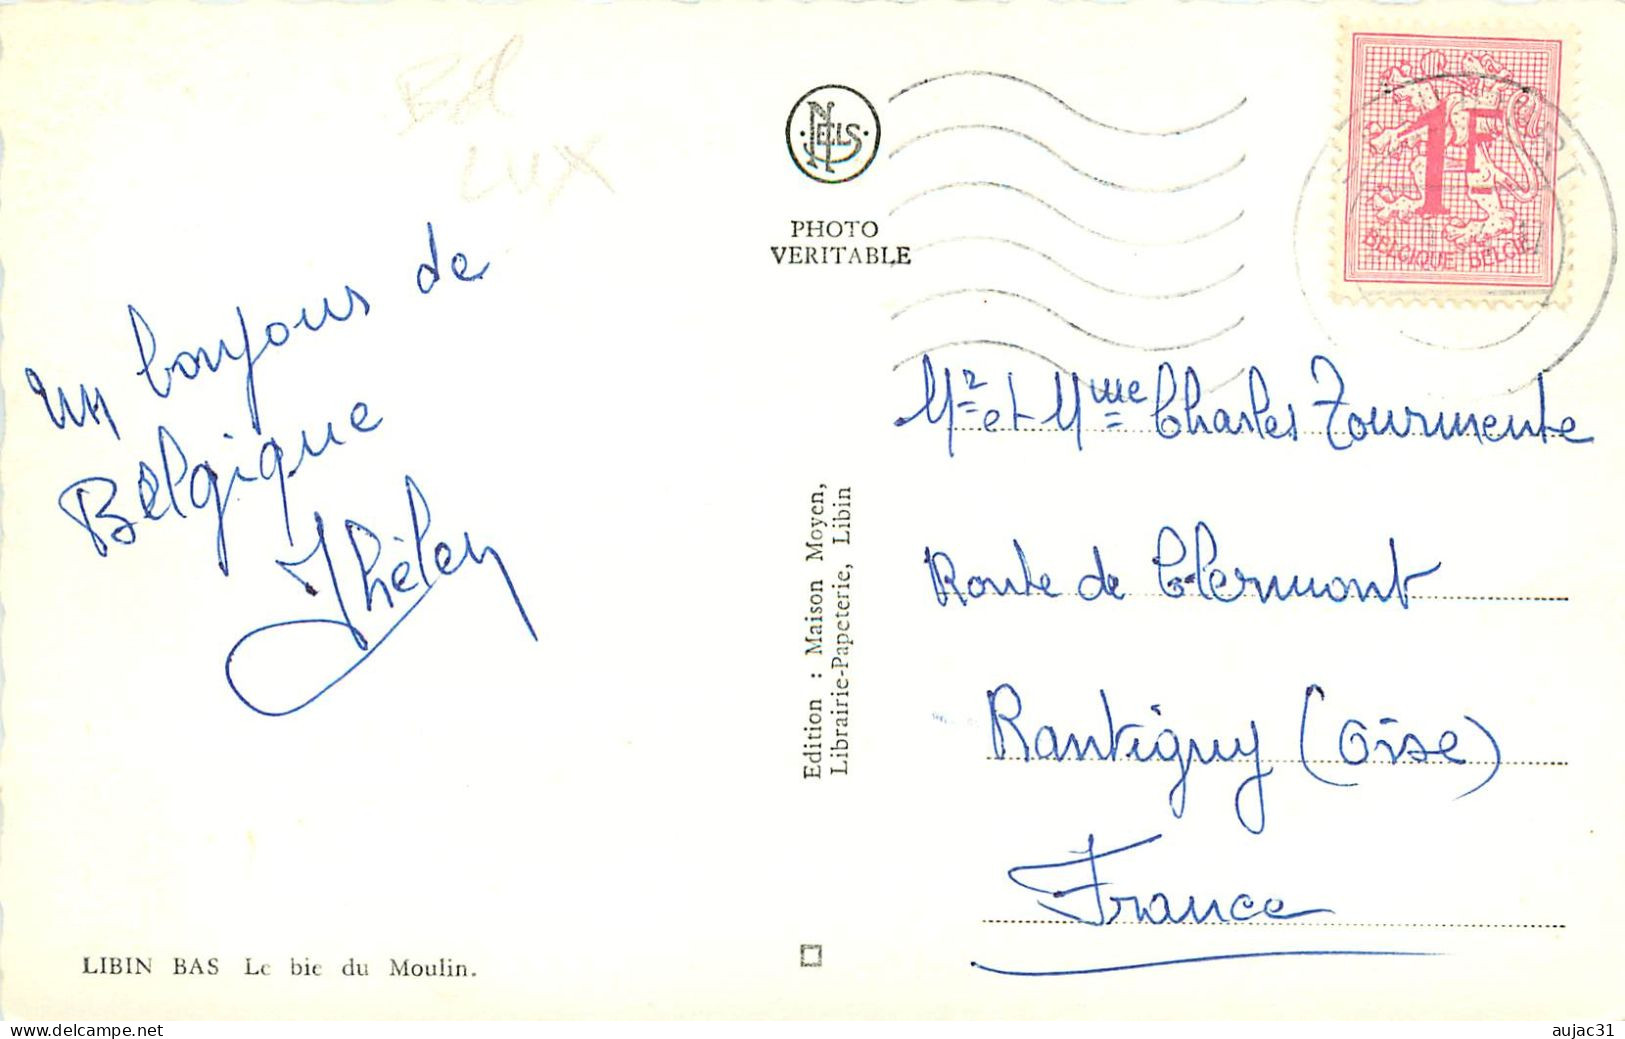 Ed
LUX
un bonjour de
Belgique
LIBIN BAS Le bie du Moulin.
NELS
PHOTO
VERITABLE
Edition : Maison Moyen,
Librairie-Papeterie, Libin
1F
BELGIQUE BELGIE
Mr et Mme Charles Tourmente
Route de Clermont
Rantigny (Oise)
France
aujac31
www.delcampe.net